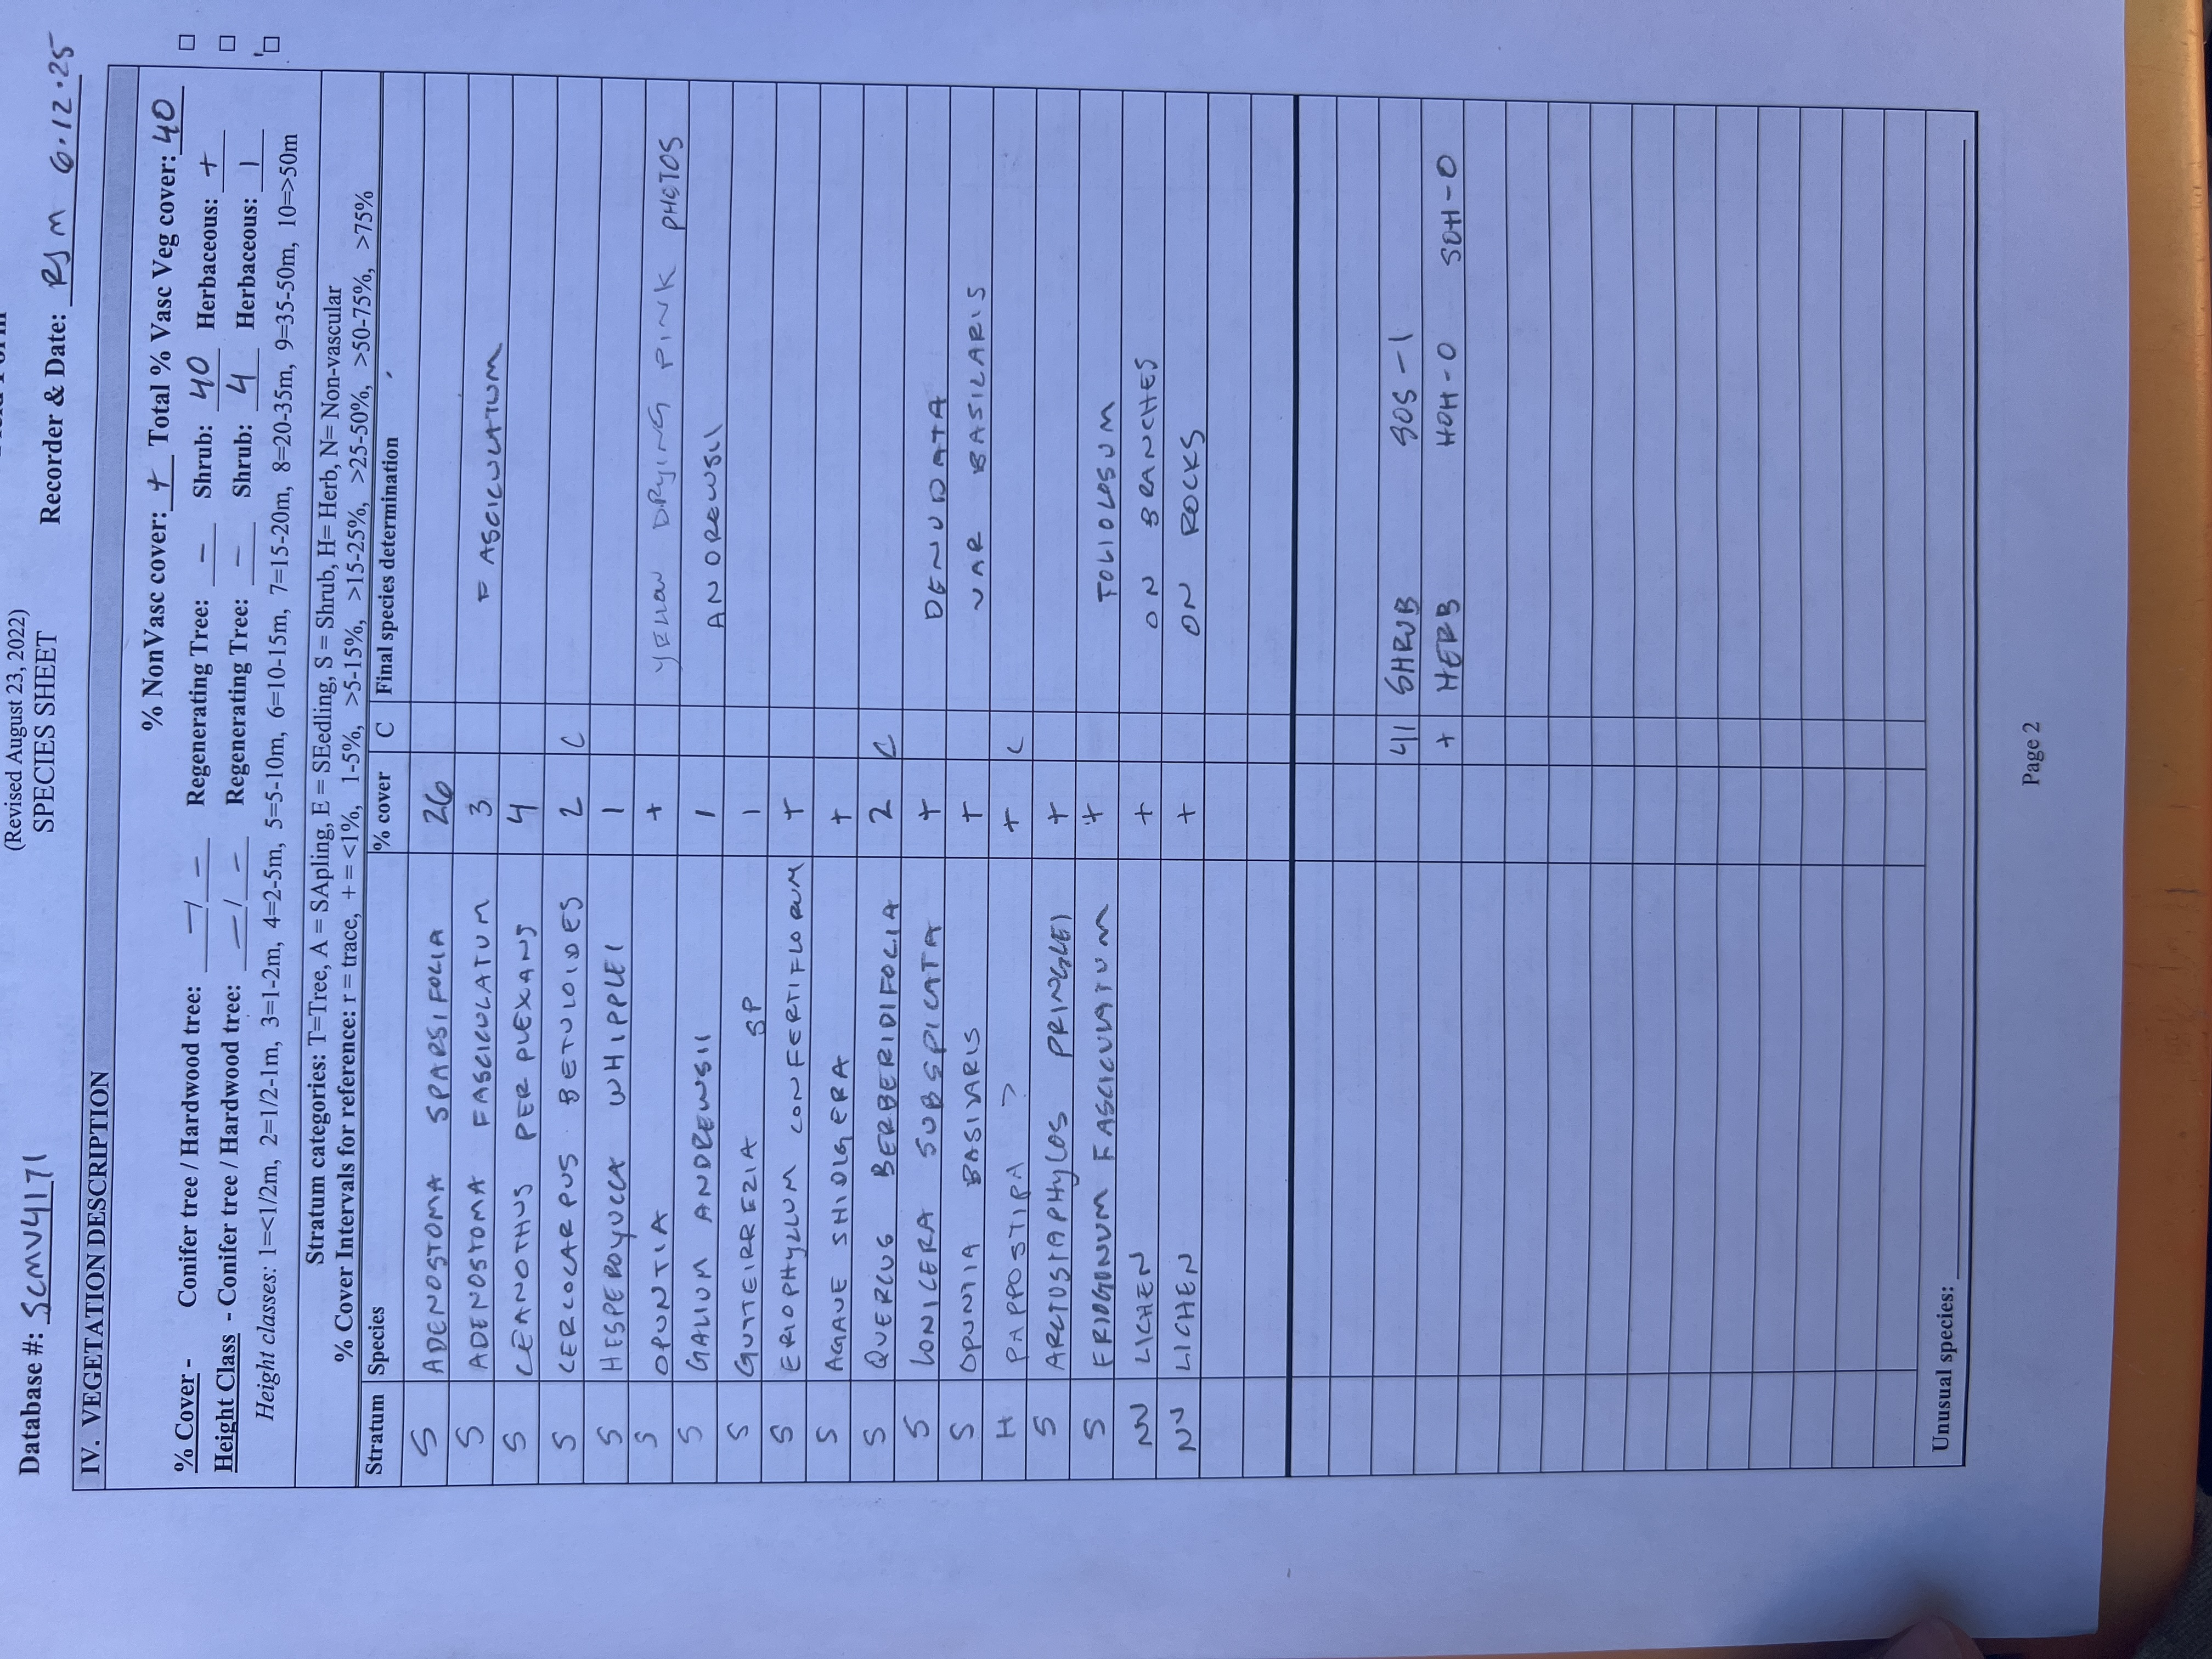 (Revised August 23, 2022)
SPECIES SHEET
Database #: SCMV4171 Recorder & Date: RJM 6.12.25
IV. VEGETATION DESCRIPTION
% NonVasc cover: + Total % Vasc Veg cover: 40
% Cover - Conifer tree / Hardwood tree: - / - Regenerating Tree: - Shrub: 40 Herbaceous: +
Height Class - Conifer tree / Hardwood tree: - / - Regenerating Tree: - Shrub: 4 Herbaceous: 1
Height classes: 1=<1/2m, 2=1/2-1m, 3=1-2m, 4=2-5m, 5=5-10m, 6=10-15m, 7=15-20m, 8=20-35m, 9=35-50m, 10=>50m
Stratum categories: T=Tree, A = SApling, E = SEedling, S = Shrub, H= Herb, N= Non-vascular
% Cover Intervals for reference: r = trace, + = <1%, 1-5%, >5-15%, >15-25%, >25-50%, >50-75%, >75%
Stratum Species % cover C Final species determination
S ADENOSTOMA SPARSIFOLIA 26
S ADENOSTOMA FASCICULATUM 3 FASCICULATUM
S CEANOTHUS PERPLEXANS 4
S CERCOCARPUS BETULOIDES 2 C
S HESPEROYUCCA WHIPPLEI 1
S OPUNTIA + YELLOW DRYING PINK PHOTOS
S GALIUM ANDREWSII 1 ANDREWSII
S GUTEIRREZIA SP 1
S ERIOPHYLLUM CONFERTIFLORUM +
S AGAVE SHIDIGERA +
S QUERCUS BERBERIDIFOLIA 2 C
S LONICERA SUBSPICATA + DENUDATA
S OPUNTIA BASILARIS + VAR BASILARIS
H PAPPOSTIPA ? + C
S ARCTOSTAPHYLOS PRINGLEI +
S ERIOGONUM FASCICULATUM + FOLIOLOSUM
N LICHEN + ON BRANCHES
N LICHEN + ON ROCKS
41 SHRUB SOS-1
+ HERB HOH-0 SOH-0
Unusual species:
Page 2